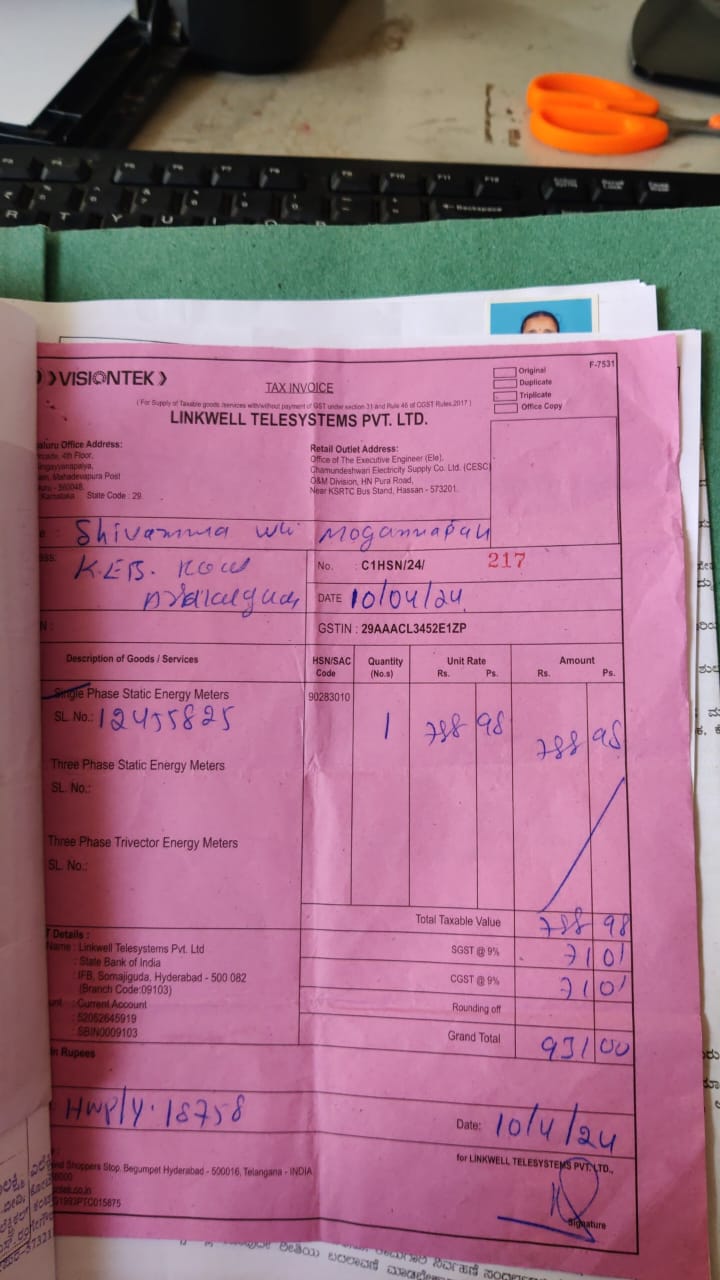 VISIONTEK
TAX INVOICE
( For Supply of Taxable goods /services with/without payment of GST under section 31 and Rule 46 of CGST Rules,2017 )
LINKWELL TELESYSTEMS PVT. LTD.
Original
Duplicate
Triplicate
Office Copy
F-7531
Office Address:
4th Floor,
Mahadevapura Post
- 560048.
State Code : 29
Retail Outlet Address:
Office of The Executive Engineer (Ele),
Chamundeshwari Electricity Supply Co. Ltd. (CESC)
O&M Division, HN Pura Road,
Near KSRTC Bus Stand, Hassan - 573201.
Shivamma
K.E.B.
No. : C1HSN/24/ 217
DATE 10/04/24
GSTIN : 29AAACL3452E1ZP
Description of Goods / Services
HSN/SAC Code
Quantity (No.s)
Unit Rate
Rs. Ps.
Amount
Rs. Ps.
Single Phase Static Energy Meters
90283010
SL. No.: 12455825
1 788 98 788 98
Three Phase Static Energy Meters
SL. No.:
Three Phase Trivector Energy Meters
SL. No.:
Total Taxable Value 788 98
SGST @ 9% 71 01
CGST @ 9% 71 01
Rounding off
Grand Total 931 00
Details :
Name : Linkwell Telesystems Pvt. Ltd
: State Bank of India
: IFB, Somajiguda, Hyderabad - 500 082
(Branch Code:09103)
: Current Account
: 52062645919
: SBIN0009103
in Rupees
18758
Date: 10/4/24
for LINKWELL TELESYSTEMS PVT. LTD.,
Shoppers Stop, Begumpet Hyderabad - 500016, Telangana - INDIA
Signature